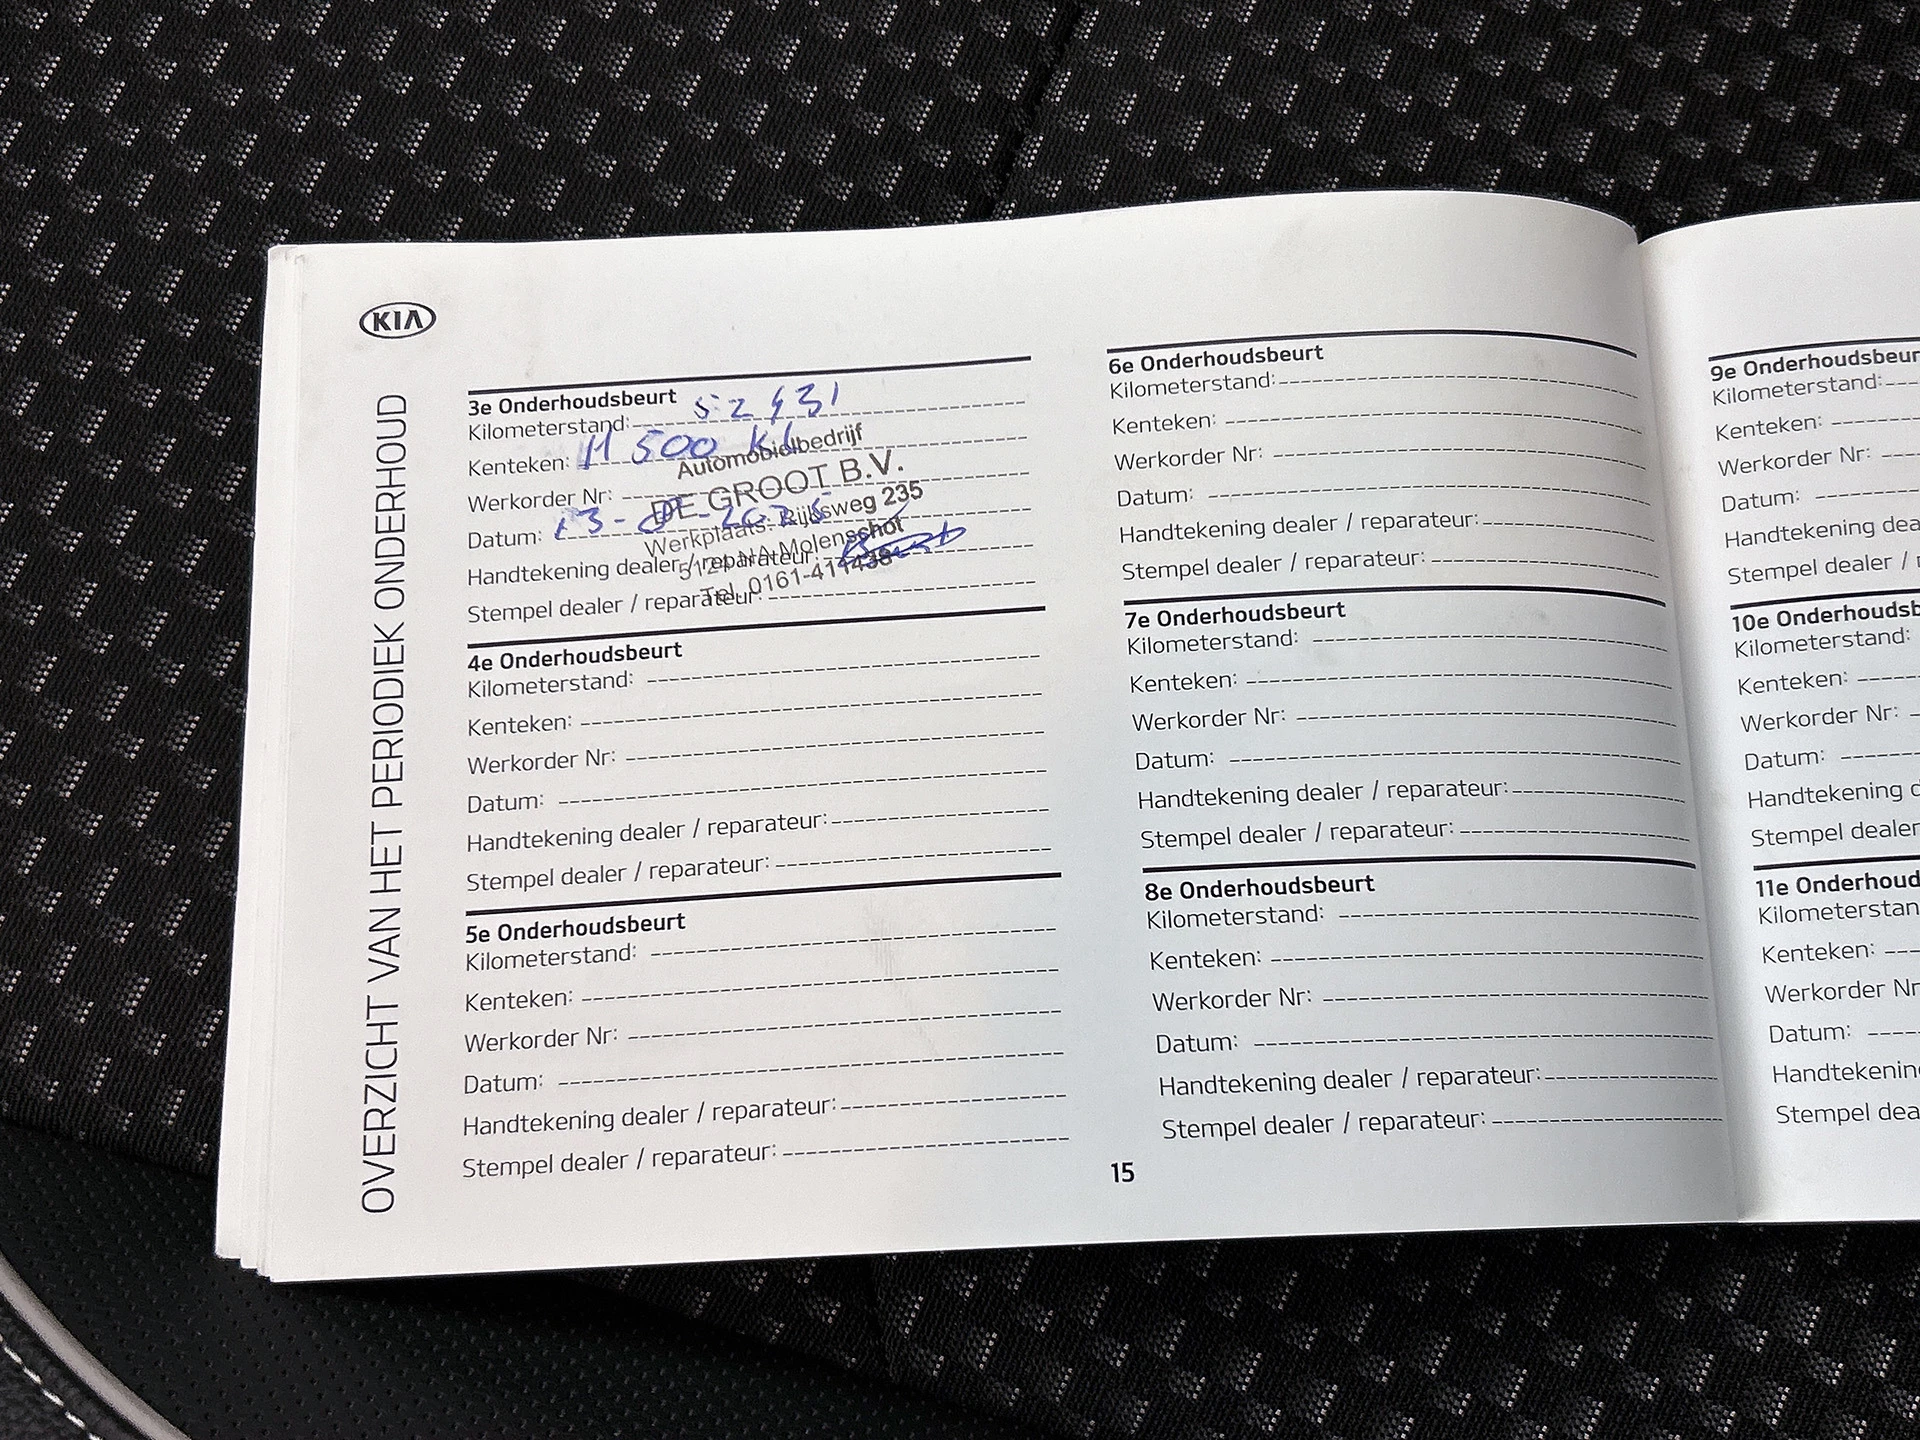 KIA
OVERZICHT VAN HET PERIODIEK ONDERHOUD
3e Onderhoudsbeurt
Kilometerstand:
Kenteken: H 500 KL
Werkorder Nr:
Datum:
Handtekening dealer / reparateur:
Stempel dealer / reparateur:
Automobielbedrijf
DE GROOT B.V.
Werkplaats: Rijksweg 235
5124 NA Molenschot
Tel. 0161-411438
4e Onderhoudsbeurt
Kilometerstand:
Kenteken:
Werkorder Nr:
Datum:
Handtekening dealer / reparateur:
Stempel dealer / reparateur:
5e Onderhoudsbeurt
Kilometerstand:
Kenteken:
Werkorder Nr:
Datum:
Handtekening dealer / reparateur:
Stempel dealer / reparateur:
6e Onderhoudsbeurt
Kilometerstand:
Kenteken:
Werkorder Nr:
Datum:
Handtekening dealer / reparateur:
Stempel dealer / reparateur:
7e Onderhoudsbeurt
Kilometerstand:
Kenteken:
Werkorder Nr:
Datum:
Handtekening dealer / reparateur:
Stempel dealer / reparateur:
8e Onderhoudsbeurt
Kilometerstand:
Kenteken:
Werkorder Nr:
Datum:
Handtekening dealer / reparateur:
Stempel dealer / reparateur:
15
9e Onderhoudsbeur
Kilometerstand:
Kenteken:
Werkorder Nr:
Datum:
Handtekening dea
Stempel dealer /
10e Onderhoudsb
Kilometerstand:
Kenteken:
Werkorder Nr:
Datum:
Handtekening d
Stempel dealer
11e Onderhoud
Kilometerstan
Kenteken:
Werkorder Nr
Datum:
Handtekening
Stempel dea